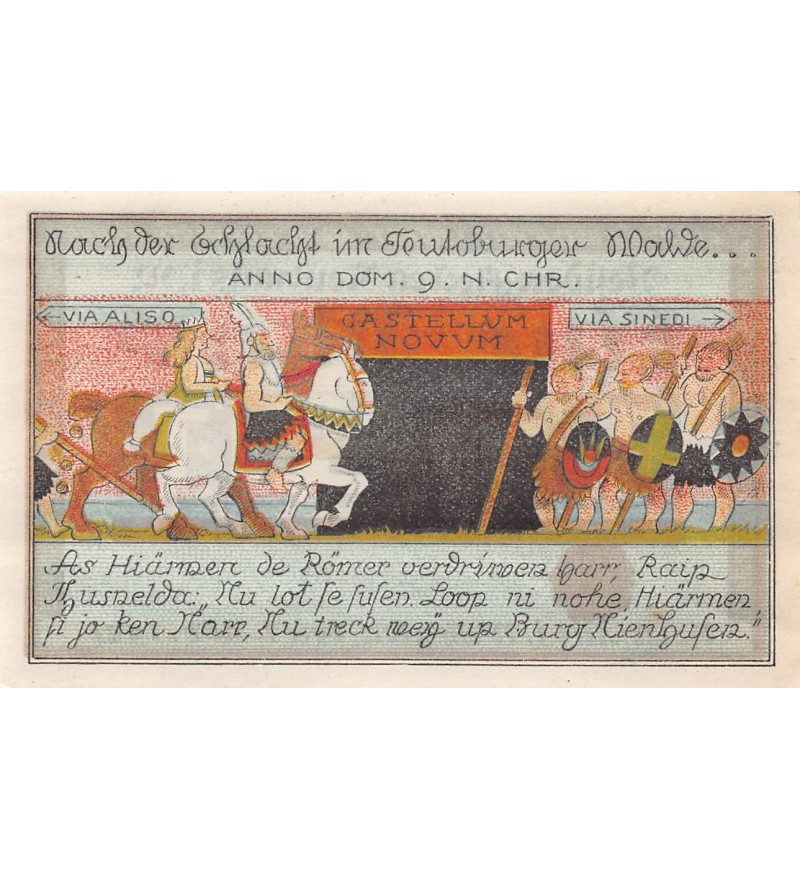 Nach der Schlacht im Teutoburger Walde...
ANNO DOM. 9. N. CHR.
VIA ALISO
CASTELLVM
NOVVM
VIA SINEDI
As Hiärmen de Römer verdriwen harr, Raip
Thusnelda: „Nu lot se susen. Loop ni nohe, Hiärmen,
si jo ken Narr, Nu treck wey up Burg Nienhusen."